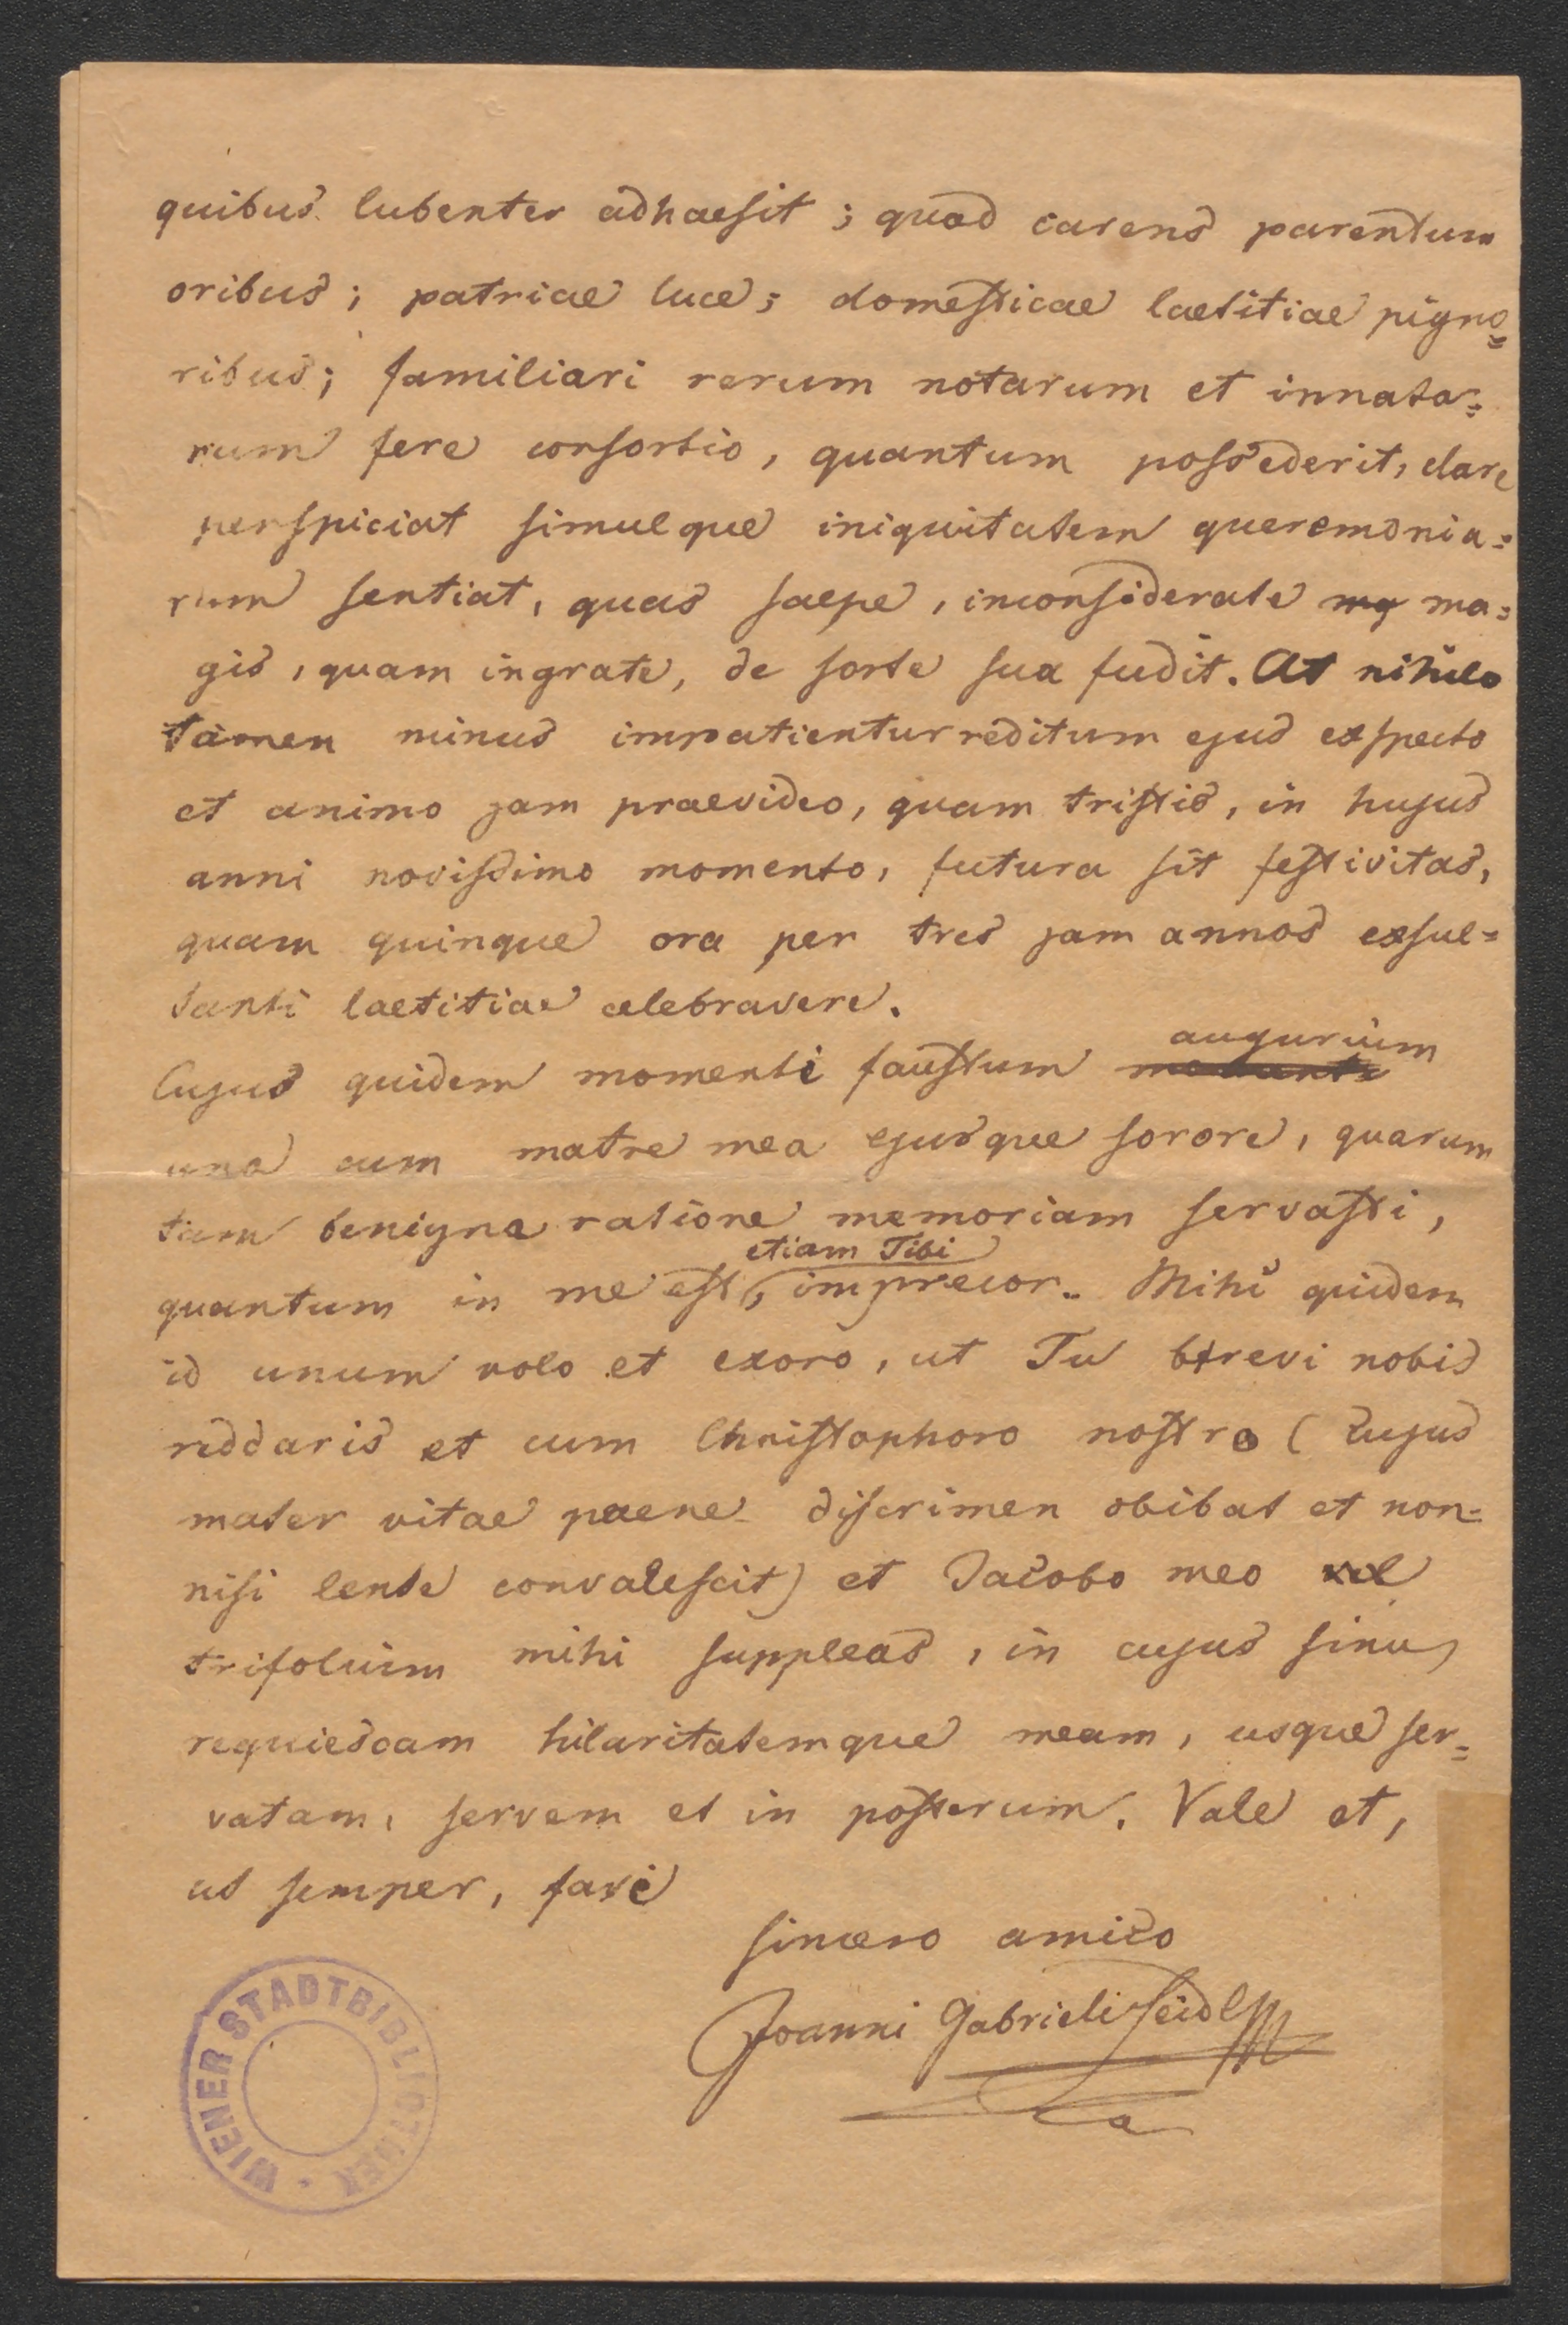 quibus lubenter adhaesit; quod carens parentum
oribus; patriae luce; domesticae laetitiae pigno=
ribus; familiari rerum notarum et innata=
rum fere consortio, quantum possederit, clare
perspiciat simulque iniquitatem queremonia=
rum sentiat, quas saepe, inconsiderate mg ma=
gis, quam ingrate, de sorte sua fudit. At nihilo
tamen minus impatientur reditum ejus exspecto
et animo jam praevideo, quam tristis, in hujus
anni novissimo momento, futura sit festivitas,
quam quinque ora per tres jam annos exsul=
tanti laetitiae celebravere.
augurium
Cujus quidem momenti faustum
una cum matre mea ejusque sorore, quarum
tam benigna ratione memoriam servasti,
etiam Tibi
quantum in me est, imprecor. Mihi quidem
id unum volo et exoro, ut Tu brevi nobis
reddaris et cum Christophoro nostro (cujus
mater vitae paene discrimen obibat et non=
nisi lente convalescit) et Jacobo meo
trifolium mihi suppleas, in cujus sinu
requiescam hilaritatemque meam, usque ser=
vatam, servem et in posterum. Vale et,
ut semper, fave
sincero amico
Joanni Gabrieli Seidl
WIENER STADTBIBLIOTHEK